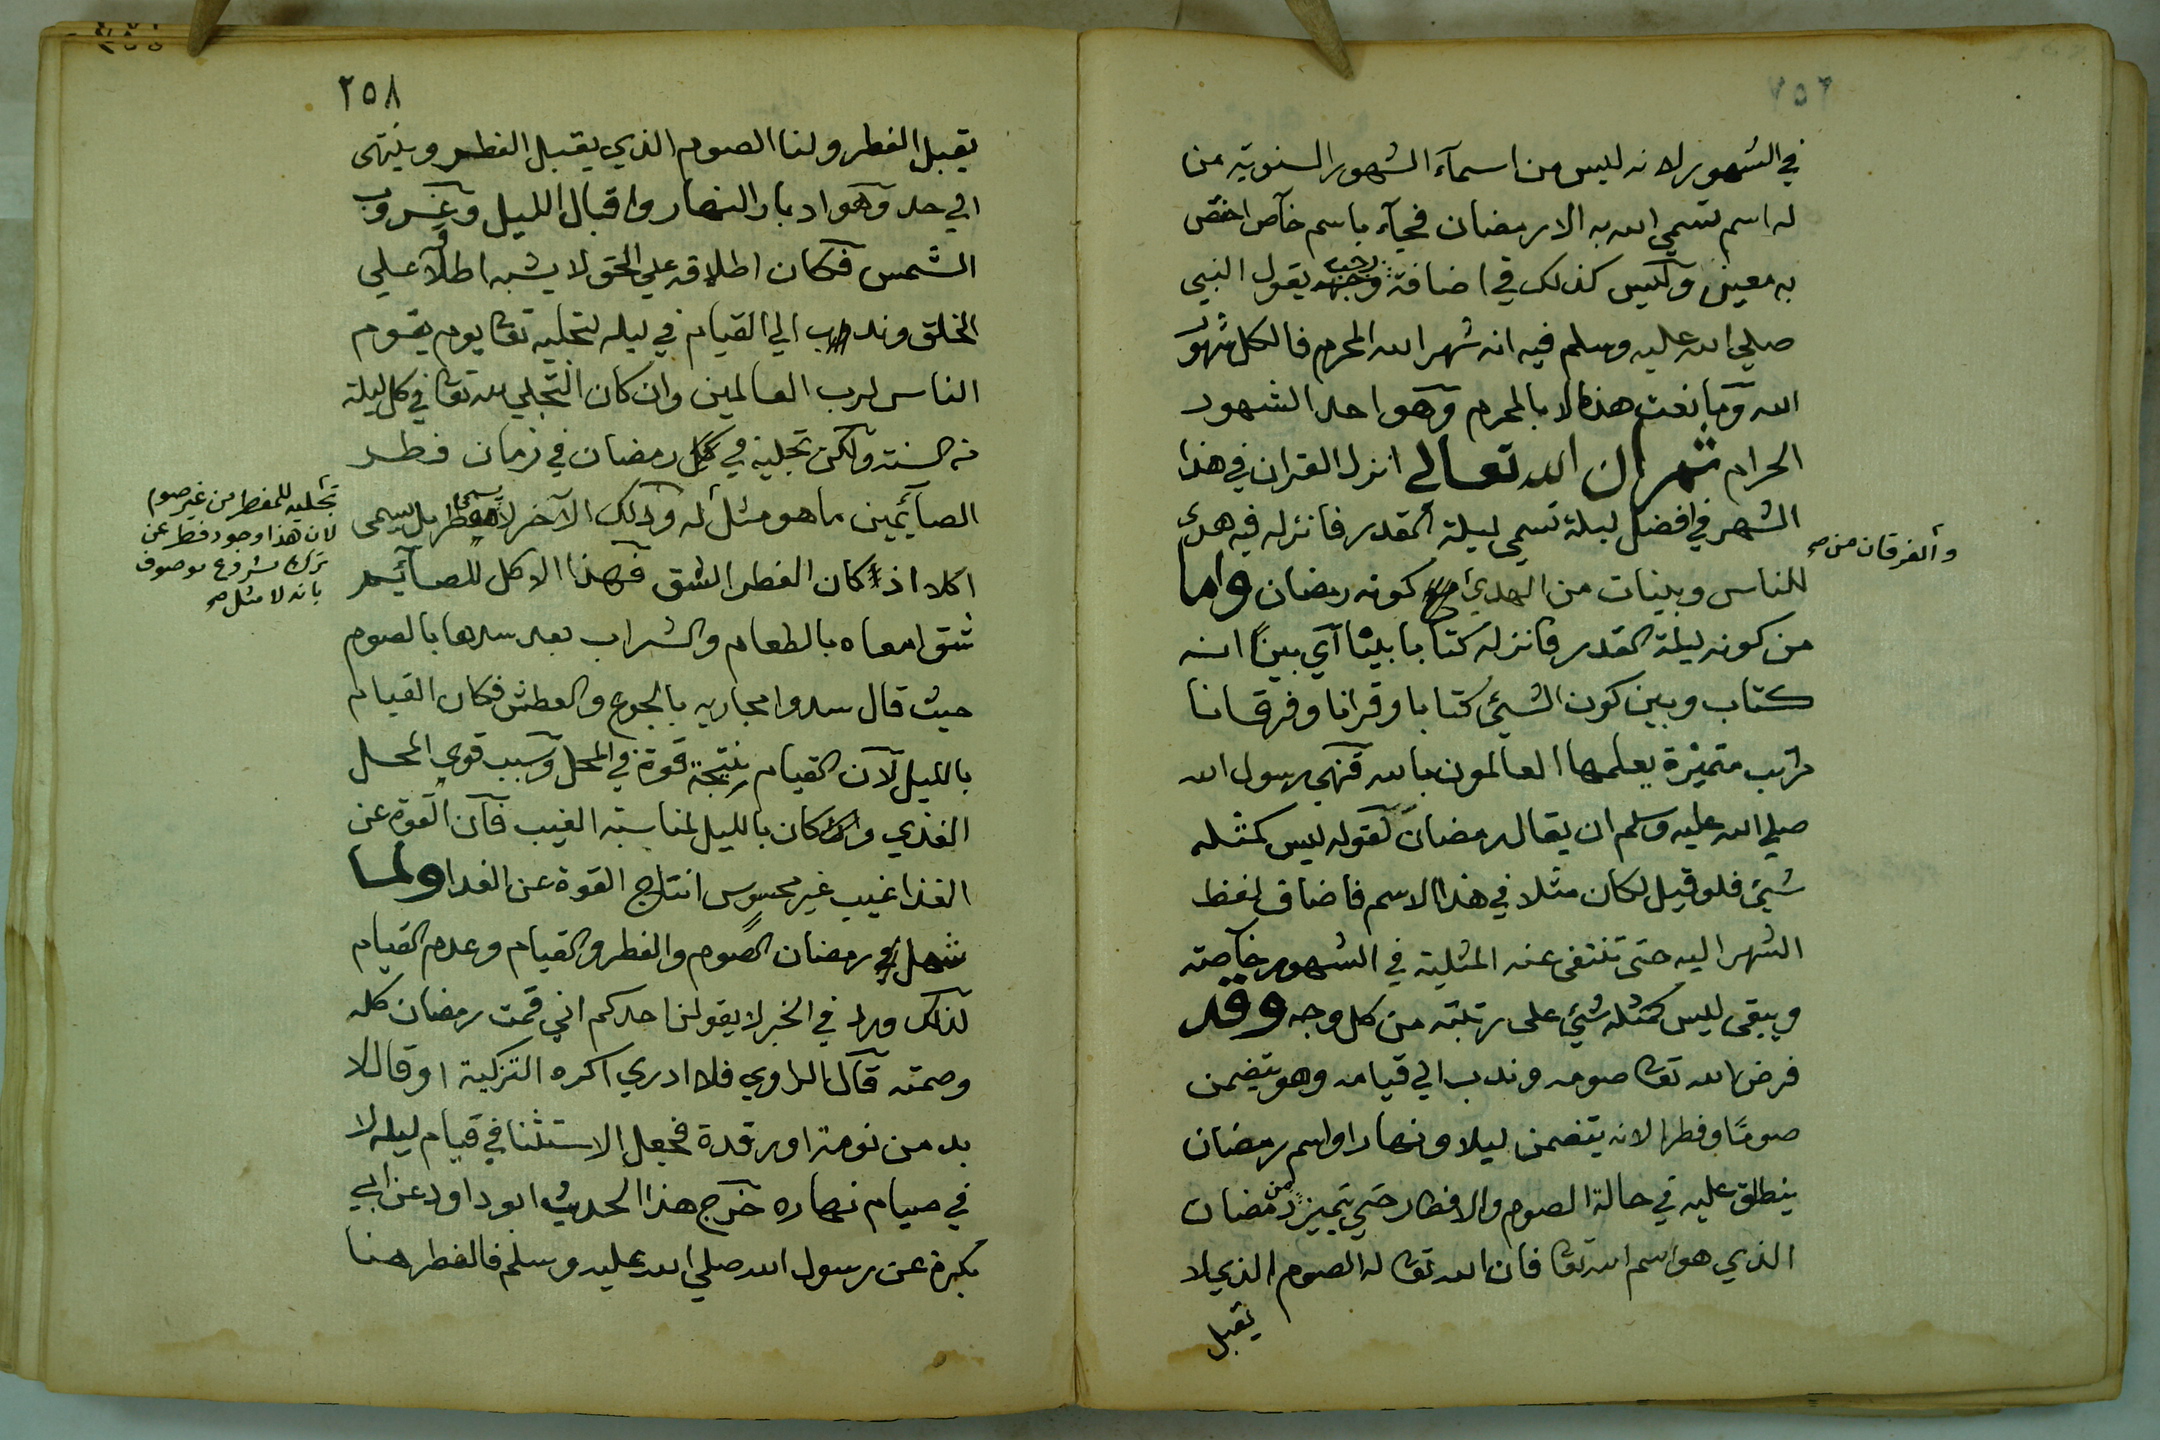 في الشهور لانه ليس من اسمآء الشهور السنوية من
له اسم تسمي الله به الا رمضان فجآء باسم خآص اختص
به معين وليس كذلك في اضافة رجب يقول النبي
صلي الله عليه وسلم فيه انه شهر الله المحرم فالكل شهور
الله وما نعت هذه الا بالمحرم وهو احد الشهور
الحرام ثمر ان الله تعالى انزل القران في هذا
الشهر في افضل ليلة تسمى ليلة القدر فانزله فيه هدى
للناس وبينات من الهدي والفرقان من كونه رمضان واما
من كونه ليلة القدر فانزله كتابا بينا آي بينًا انه
كتاب وبين كون الشيئ كتابا وقرانا وفرقانا
مراتب متميزة يعلمها العالمون بالله فنهى رسول الله
صلي الله عليه وسلم ان يقال رمضان لقوله ليس كمثله
شيئ فلو قيل لكان مثلا في هذا الاسم فاضاف لفظ
الشهر اليه حتى تنتفى عنه المثلية في الشهور خآصته
ويبقى ليس كمثله شيئ على رتبته من كل وجه وقد
فرض الله تعا صومه وندب الي قيامه وهو يتضمن
صومًا وفطرا لانه يتضمن ليلا ونهارا واسم رمضان
ينطلق عليه في حالة الصوم والافطار حتي يتميز من رمضان
الذي هو اسم الله تعا فان الله تعا له الصوم الذي لا
يقبل
٢٥٨
يقبل الفطر ولنا الصوم الذي يقبل الفطر وينتهى
الي حد وهو ادبار النهار واقبال الليل وغروب
الشمس فكان اطلاقه علي الحق لا يشبه اطلاقه علي
الخلق وندب الي القيام في ليله لتجليه تعا يوم يقوم
الناس لرب العالمين وان كان التجلي لله تعا في كل ليلة
من السنة ولكن تجليه في رمضان في زمان فطر
الصآئمين ما هو مثل تجليه للمفطر من غير صوم
لان هذا وجود فطر عن
ترك مشروع موصوف
بانه لا مثل
له وذلك الآخر لا يسمى مفطر بل يسمى
اكلا اذ كان الفطر الشق فهذا الاكل للصآئم
شق امعاه بالطعام والشراب بعد سدها بالصوم
حيث قال سدوا مجاريه بالجوع والعطش فكان القيام
بالليل لآن القيام نتيجة قوة في المحل وسبب قوي المحل
الغذي وكان بالليل لمناسبته الغيب فآن القوة عن
الغذا غيب غير محسوس انتاج القوة عن الغدا ولما
شمل رمضان الصوم والفطر والقيام وعدم القيام
لذلك ورد في الخبر لا يقولن احدكم اني قمت رمضان كله
وصمته قآل الراوي فلا ادري اكره التزكية او قال لا
بد من نومة او رقدة فجعل الاستثنا في قيام ليله لا
في صيام نهاره خرج هذا الحديث ابو داود عن ابي
بكرة عن رسول الله صلي الله عليه وسلم فالفطر هنا